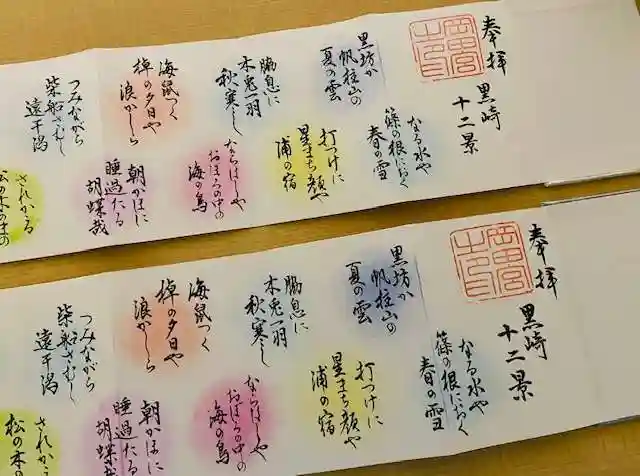 奉拝
黒崎
十二景
岡田宮
之印
なる水や
篠の根におく
春の雪
黒坊か
帆柱山の
夏の雲
打つけに
星まち顔や
浦の宿
脇息に
木兎一羽
秋寒し
ならはしや
おほろの中の
海の鳥
海鼠つく
棹の夕日や
浪かしら
朝かほに
睡過たる
胡蝶哉
つみながら
柴船さむし
遠干潟
松の木のまの
奉拝
黒崎
十二景
岡田宮
之印
なる水や
篠の根におく
春の雪
黒坊か
帆柱山の
夏の雲
打つけに
星まち顔や
浦の宿
脇息に
木兎一羽
秋寒し
ならはしや
おほろの中の
海の鳥
海鼠つく
棹の夕日や
浪かしら
朝かほに
睡過たる
胡蝶哉
つみながら
柴船さむし
遠干潟
松の木の